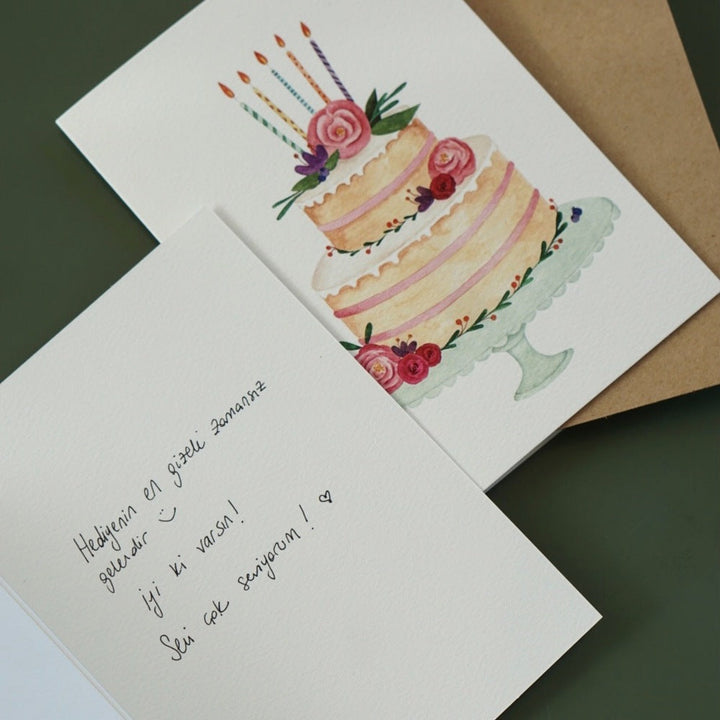 Hediyenin en gizeli zamansız
gelendir :)
iyi ki varsın!
Seni çok seviyorum! ♡